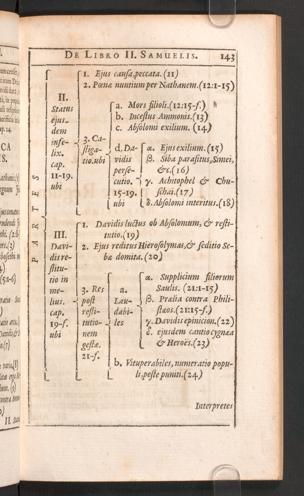 DE LIBRO II. SAMUELIS. 143
PARTES
II.
Status
ejus-
dem
infe-
lix.
cap.
11-19.
ubi
1. Ejus causa, peccata. (11)
2. Pœna nuntium per Nathanem. (12:1-15)
3. Ca-
stiga-
tio. ubi
a. Mors filioli. (12:15-f.)
b. Incestus Ammonis. (13)
c. Absolomi exilium. (14)
d. Da-
vidis
perse-
cutio.
15-19.
ubi
α. Ejus exilium. (15)
β. Siba parasitus, Simei,
&c. (16)
γ. Achitophel & Chu-
schai. (17)
δ. Absolomi interitus. (18)
III.
Davi-
dis re-
stitu-
tio in
me-
lius.
cap.
19-f.
ubi
1. Davidis luctus ob Absolonum, & resti-
tutio. (19)
2. Ejus reditus Hierosolymas, & seditio Se-
ba domita. (20)
3. Res
post
resti-
tutio-
nem
gestæ.
21-f.
a.
Lau-
dabi-
les
α. Supplicium filiorum
Saulis. (21:1-15)
β. Prælia contra Phili-
stæos. (21:15-f.)
γ. Davidis epinicion. (22)
δ. ejusdem cantio cygnæa
& Heroës. (23)
b. Vituperabiles, numeratio popu-
li, peste puniti. (24)
Interpretes